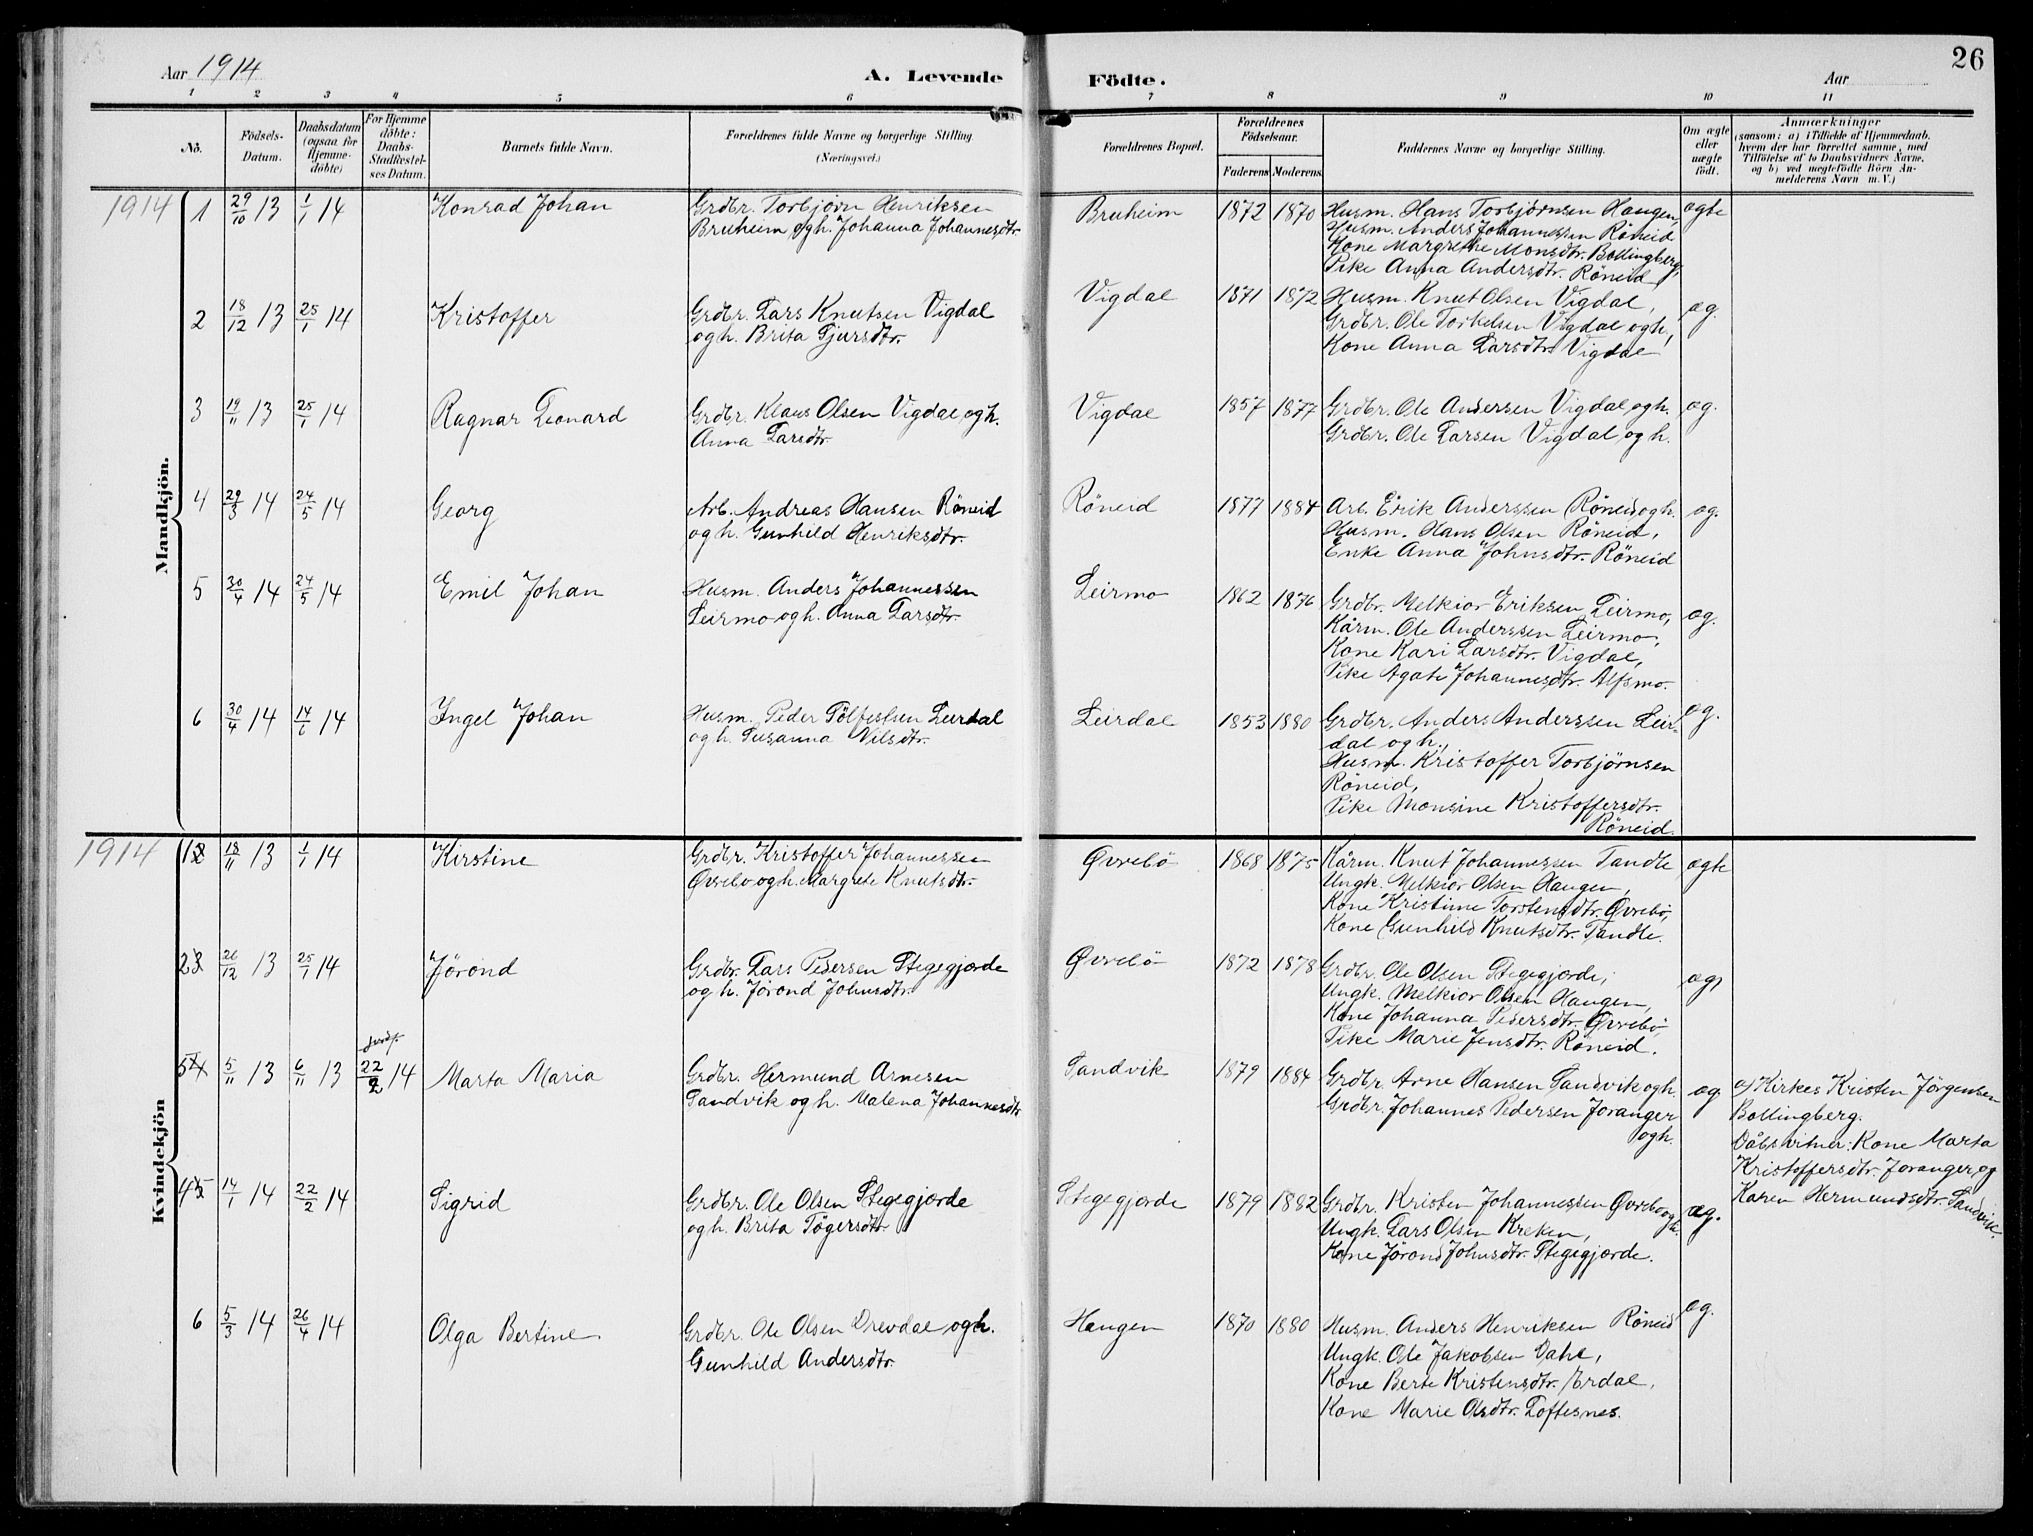 Aar 1914
A. Levende
Födte.
Aar
26
1 2 3 4 5 6 7 8 9 10 11
No.
Födsels-
Datum.
Daabsdatum
(ogsaa for
Hjemme-
döbte)
For Hjemme
döbte:
Daabs-
Stadfæstel-
ses Datum.
Barnets fulde Navn.
Forældrenes fulde Navne og borgerlige Stilling
(Næringsvei.)
Forældrenes Bopæl.
Forældrenes
Födselsaar.
Faderens Moderens
Faddernes Navne og borgerlige Stilling.
Om ægte
eller
uægte
födt.
Anmærkninger
(saasom: a) i Tilfælde af Hjemmedaab,
hvem der har forrettet samme, med
Tilföielse af to Daabsvidners Navne.
og b) ved uægtefödte Börn An-
melderens Navn m. V.)
Mandkjön.
1914 1 29/10 13 1/1 14 Konrad Johan
Grdbr. Torbjörn Henriksen
Bruheim ogh. Johanna Johannesdtr.
Bruheim 1872 1870
Husm. Hans Torbjørnsen Haugen,
Husm. Anders Johannessen Röneid
Kone Margrethe Monsdtr. Bollingberg,
Pike Anna Andersdtr. Röneid
ægte
2 18/12 13 25/1 14 Kristoffer
Grdbr. Lars Knutsen Vigdal
ogh. Brita Sjursdtr.
Vigdal 1871 1872
Husm. Knut Olsen Vigdal,
Grdbr. Ole Torkelsen Vigdal ogh.,
Kone Anna Larsdtr. Vigdal
æg.
3 19/11 13 25/1 14 Ragnar Leonard
Grdbr. Klaus Olsen Vigdal ogh.
Anna Larsdtr.
Vigdal 1857 1877
Grdbr. Ole Andersen Vigdal ogh.
Grdbr. Ole Larsen Vigdal ogh.
æg.
4 29/3 14 24/5 14 Georg
Arb. Andreas Hansen Röneid
ogh. Gunhild Henriksdtr.
Röneid 1877 1884
Arb. Erik Anderssen Röneid ogh.
Husm. Hans Olsen Röneid,
Enke Anna Johnsdtr. Röneid
æg.
5 30/4 14 24/5 14 Emil Johan
Husm. Anders Johannessen
Leirmo ogh. Anna Larsdtr.
Leirmo 1862 1876
Grdbr. Melkior Eriksen Leirmo,
Kårm. Ole Anderssen Leirmo,
Kone Kari Larsdtr. Vigdal,
Pike Agate Johannesdtr. Alfsmo.
æg.
6 30/4 14 14/6 14 Ingel Johan
Husm. Peder Tölfessen Leirdal
ogh. Susanna Nilsdtr.
Leirdal 1853 1880
Grdbr. Anders Anderssen Leir-
dal ogh.,
Husm. Kristoffer Torbjørnsen
Röneid,
Pike Monsine Kristoffersdtr.
Röneid.
æg.
Kvindekjön
1914 1 18/11 13 1/1 14 Kirstine
Grdbr. Kristoffer Johannessen
Øvrebo ogh. Margrete Knutsdtr.
Øvrebö 1868 1875
Kårm. Knut Johannessen Tandle
Ungk. Melkior Olsen Haugen,
Kone Kristine Torstensdtr. Øvrebö,
Kone Gunhild Knutsdtr. Tandle.
ægte
2 26/12 13 25/1 14 Jörond
Grdbr. Lars Pedersen Stegegjerde
ogh. Jörond Johnsdtr.
Øvrebö 1872 1878
Grdbr. Ole Olsen Stegegjerde,
Ungk. Melkior Olsen Haugen,
Kone Johanna Pedersdtr. Øvrebö,
Pike Marie Jensdtr. Röneid.
æg.
5 5/11 13 6/11 13 22/2 14 Marta Maria
Grdbr. Hermund Arnesen
Sandvik ogh. Malena Johannesdtr.
Sandvik 1879 1884
Grdbr. Arne Hansen Sandvik ogh.
Grdbr. Johannes Pedersen Joranger
ogh.
æg.
a) Kirkes. Kristen Jörgensen
Bollingberg.
Dåbsvitner: Kone Marta
Kristoffersdtr. Joranger og
Karen Hermundsdtr. Sandvik.
4 14/1 14 22/2 14 Sigrid
Grdbr. Ole Olsen Stegegjerde
ogh. Brita Tögersdtr.
Stegegjerde 1879 1882
Grdbr. Kristen Johannessen Øvrebo ogh.
Ungk. Lars Olsen Kreken,
Kone Jörond Johnsdtr. Stegegjerde.
æg.
6 5/3 14 26/4 14 Olga Bertine
Grdbr. Ole Olsen Drevdal ogh.
Gunhild Andersdtr.
Haugen 1870 1880
Husm. Anders Henriksen Röneid
Ungk. Ole Jakobsen Dahl,
Kone Berte Kristensdtr. Erdal,
Kone Marie Olsdtr. Loftesnes.
æg.